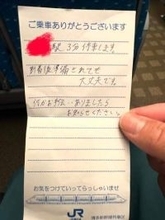 ご乗車ありがとうございます
駅 3分停車します
到着後準備されても
大丈夫です
何かお困りありましたら
お知らせください
お気をつけていってらっしゃいませ
JR